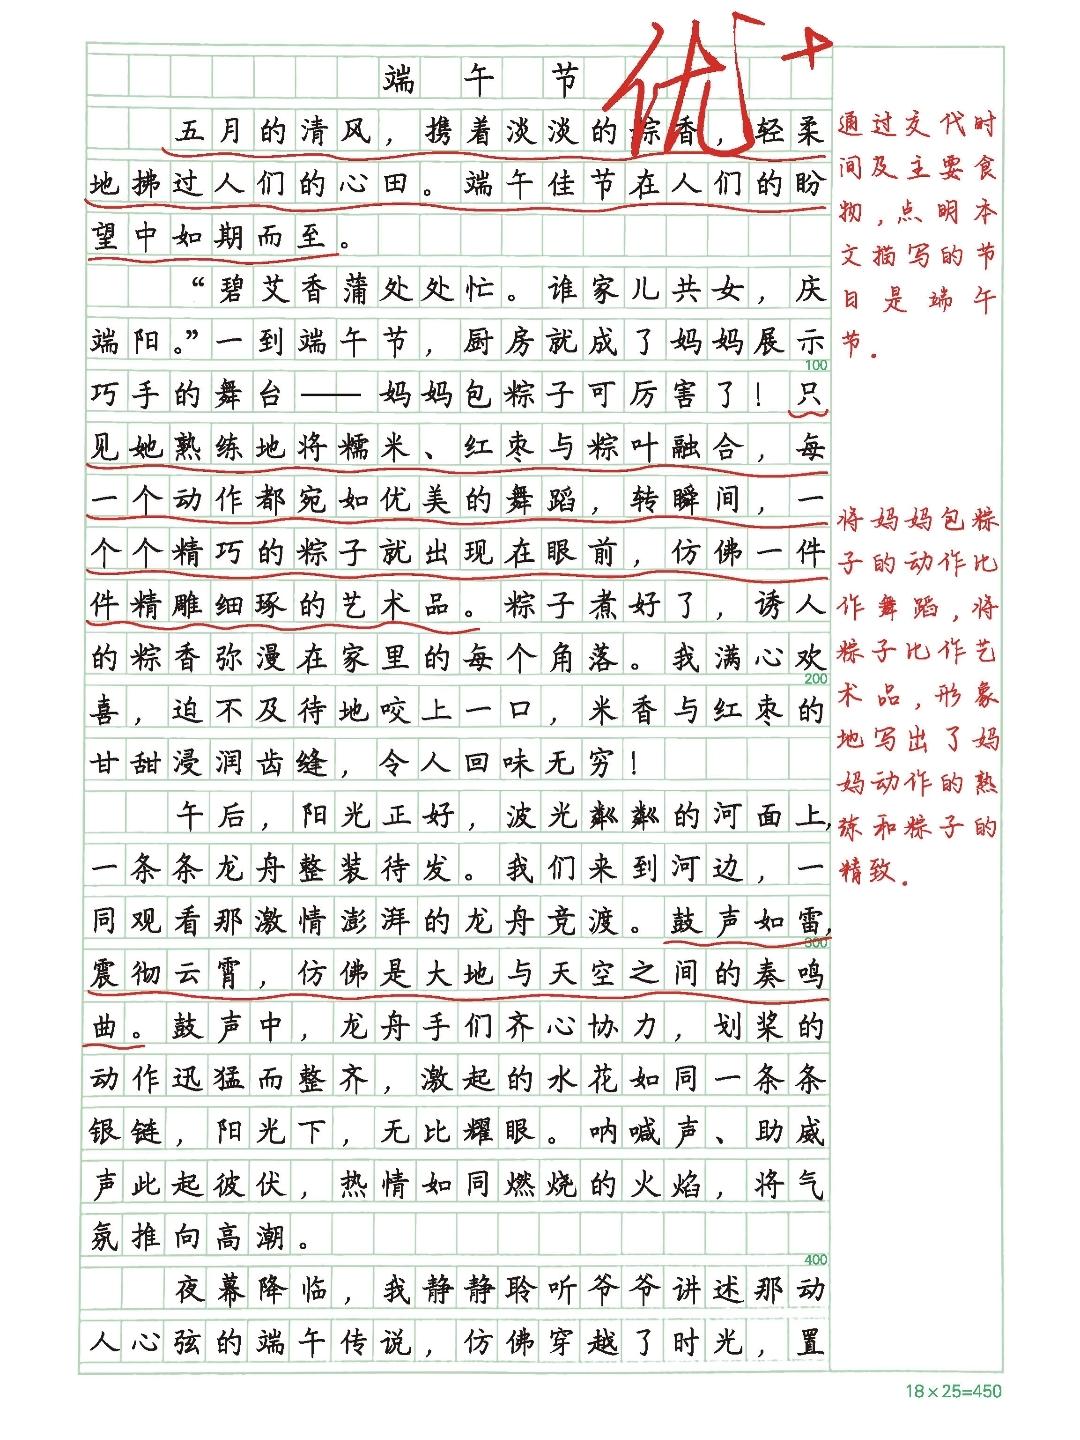 端午节
优+
五月的清风，携着淡淡的粽香，轻柔
地拂过人们的心田。端午佳节在人们的盼
望中如期而至。
“碧艾香蒲处处忙。谁家儿共女，庆
端阳。”一到端午节，厨房就成了妈妈展示
100
巧手的舞台——妈妈包粽子可厉害了！只
见她熟练地将糯米、红枣与粽叶融合，每
一个动作都宛如优美的舞蹈，转瞬间，一
个个精巧的粽子就出现在眼前，仿佛一件
件精雕细琢的艺术品。粽子煮好了，诱人
的粽香弥漫在家里的每个角落。我满心欢
200
喜，迫不及待地咬上一口，米香与红枣的
甘甜浸润齿缝，令人回味无穷！
午后，阳光正好，波光粼粼的河面上，
一条条龙舟整装待发。我们来到河边，一
同观看那激情澎湃的龙舟竞渡。鼓声如雷，
300
震彻云霄，仿佛是大地与天空之间的奏鸣
曲。鼓声中，龙舟手们齐心协力，划桨的
动作迅猛而整齐，激起的水花如同一条条
银链，阳光下，无比耀眼。呐喊声、助威
声此起彼伏，热情如同燃烧的火焰，将气
氛推向高潮。
400
夜幕降临，我静静聆听爷爷讲述那动
人心弦的端午传说，仿佛穿越了时光，置
通过交代时
间及主要食
物，点明本
文描写的节
日是端午
节.
将妈妈包粽
子的动作比
作舞蹈，将
粽子比作艺
术品，形象
地写出了妈
妈动作的熟
练和粽子的
精致.
18×25=450